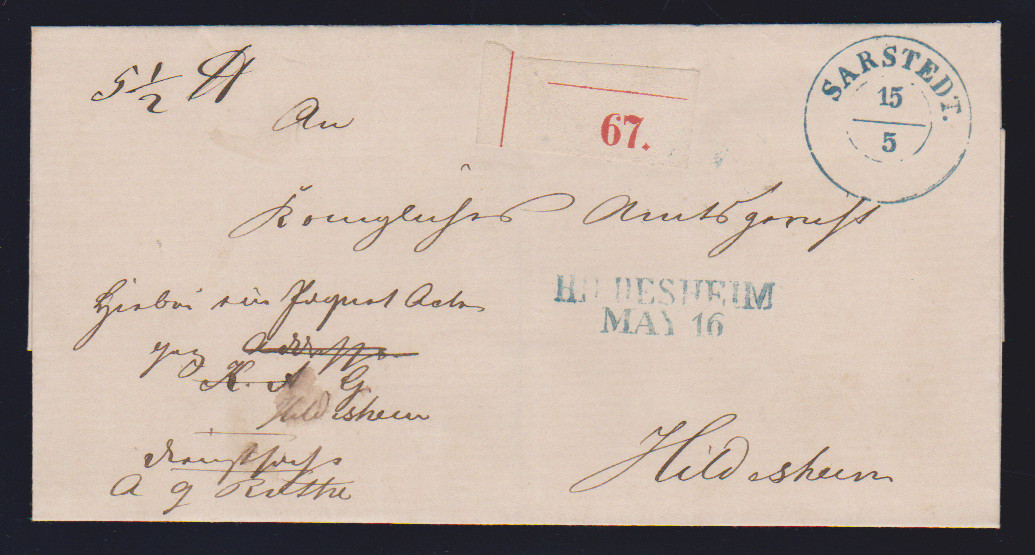 5 1/2 ℔
An
67.
SARSTEDT.
15
5
Königliches Amtsgericht
Hierbei ein Paquet Acten
HILDESHEIM
MAY 16
gez
K. A G
Hildesheim
Hildesheim
Dienstsache
A G